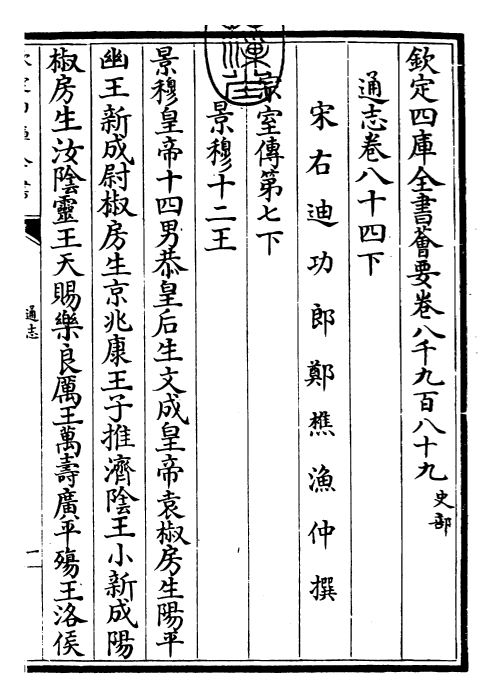 欽定四庫全書薈要卷八千九百八十九 史部
通志卷八十四下
宋右迪功郎鄭樵漁仲撰
宗室傳第七下
景穆十二王
景穆皇帝十四男恭皇后生文成皇帝袁椒房生陽平
幽王新成尉椒房生京兆康王子推濟隂王小新成陽
椒房生汝隂靈王天賜樂良厲王萬壽廣平殤王洛侯
通志